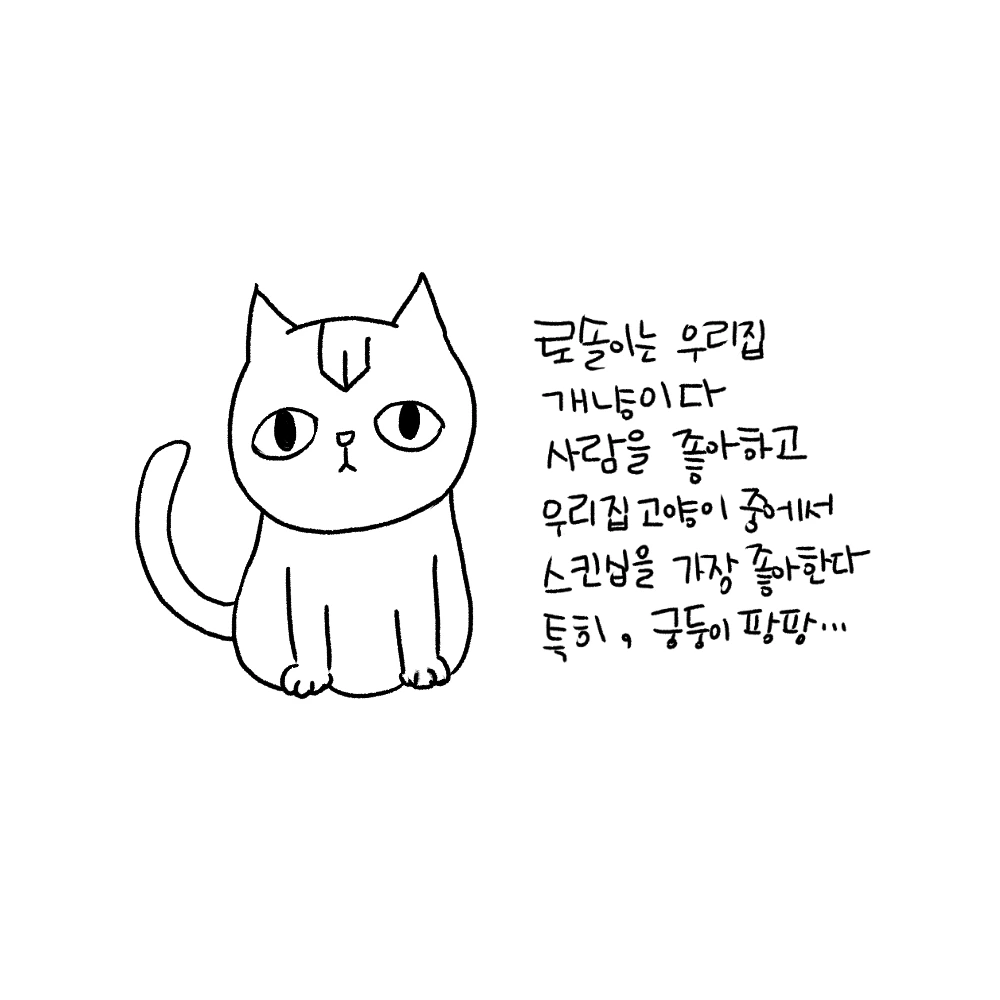 로똘이는 우리집
개냥이다
사람을 좋아하고
우리집 고양이 중에서
스킨십을 가장 좋아한다
특히, 궁둥이 팡팡...